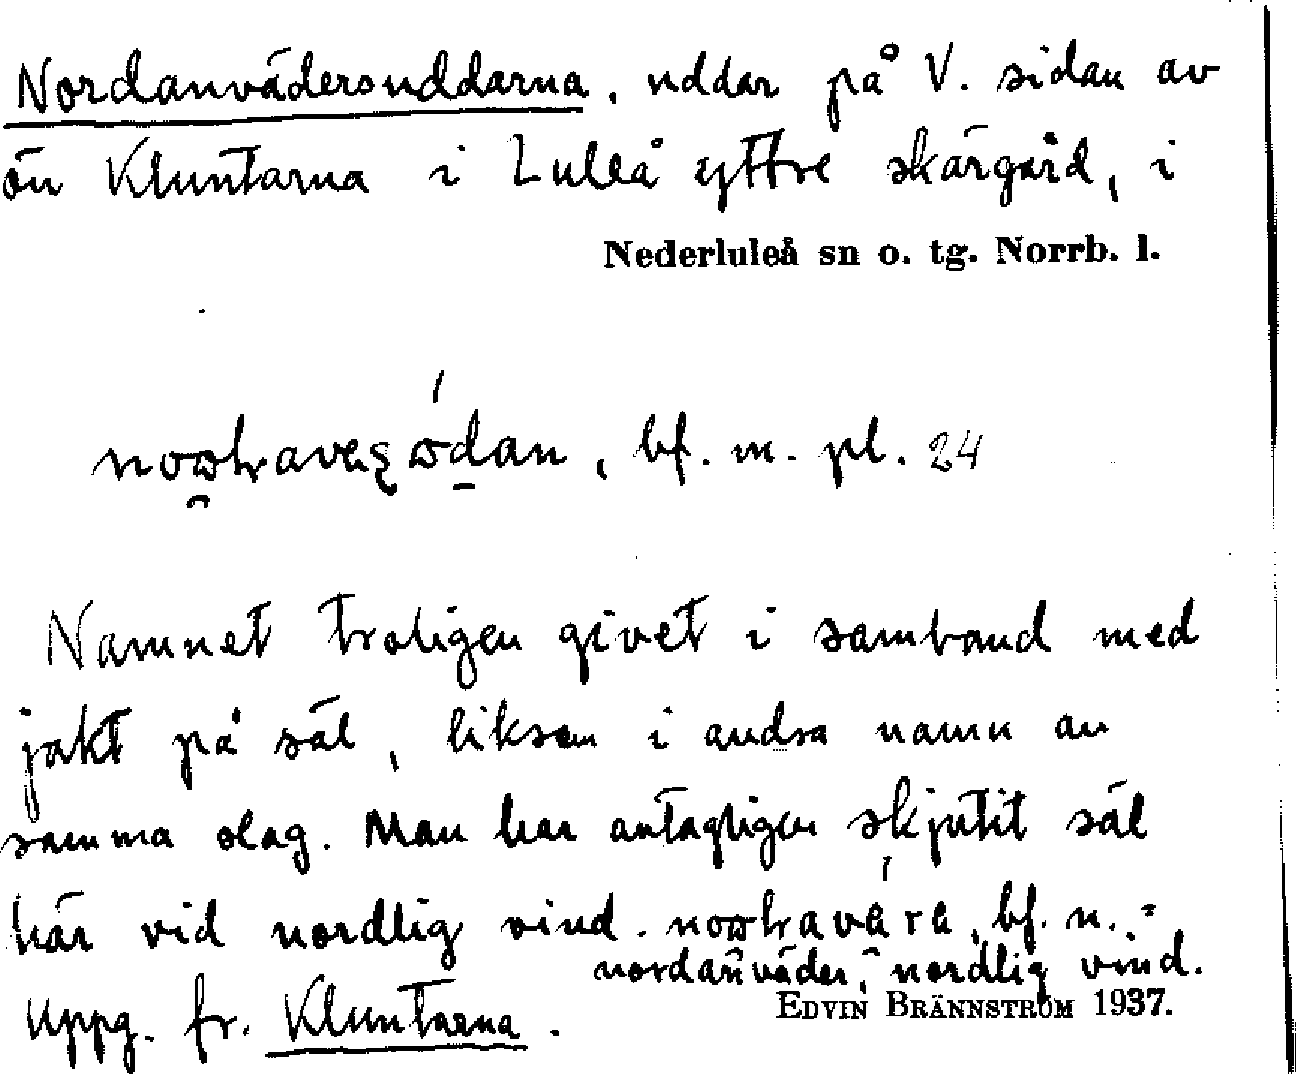 Nordanvädersuddarna, uddar på V. sidan av
ön Kluntarna i Luleå yttre skärgård, i
Nederluleå sn o. tg. Norrb. l.
bf. m. pl. 24
Namnet troligen givet i samband med
jakt på säl, liksom i andra namn av
samma slag. Man har antagligen skjutit säl
här vid nordlig vind. bf. n. =
nordanväder, nordlig vind.
Uppg. fr. Kluntarna.
EDVIN BRÄNNSTRÖM 1937.